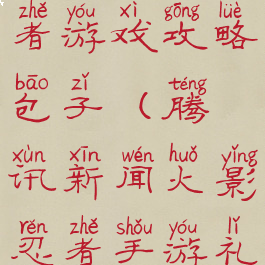 zhě yóu xì gōng lüè
者游戏攻略
bāo zǐ téng
包子(腾
xùn xīn wén huǒ yǐng
讯新闻火影
rěn zhě shǒu yóu lǐ
忍者手游礼